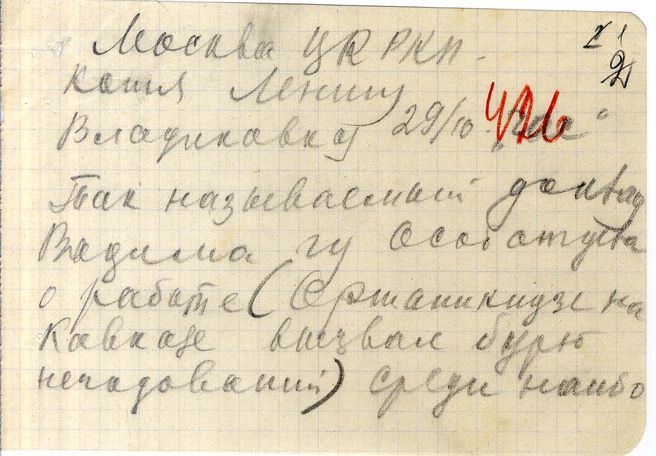 Москва ЦК РКП.
Копия Ленину
Владикавказ 29/10
Так называемый доклад
Вадима
о работе (Орджаникидзе на
Кавказе вызвал бурю
негодований) среди наибо